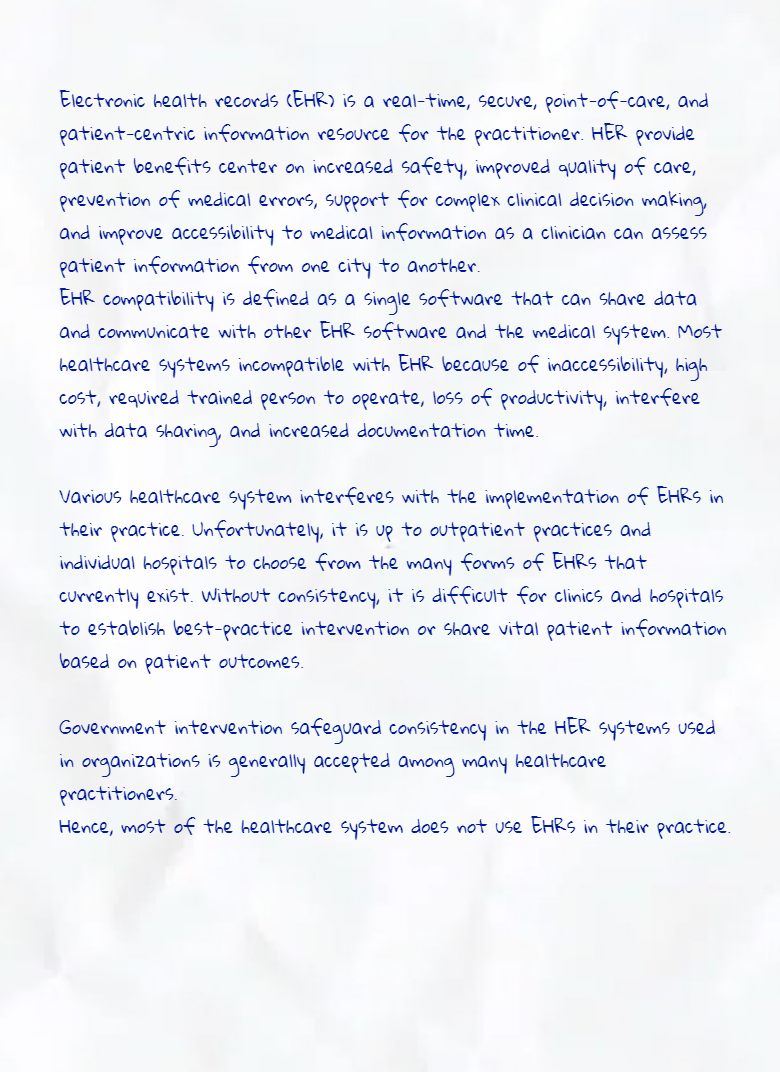 Electronic health records (EHR) is a real-time, secure, point-of-care, and
patient-centric information resource for the practitioner. HER provide
patient benefits center on increased safety, improved quality of care,
prevention of medical errors, support for complex clinical decision making,
and improve accessibility to medical information as a clinician can assess
patient information from one city to another.
EHR compatibility is defined as a single software that can share data
and communicate with other EHR software and the medical system. Most
healthcare systems incompatible with EHR because of inaccessibility, high
cost, required trained person to operate, loss of productivity, interfere
with data sharing, and increased documentation time.
Various healthcare system interferes with the implementation of EHRs in
their practice. Unfortunately, it is up to outpatient practices and
individual hospitals to choose from the many forms of EHRs that
currently exist. Without consistency, it is difficult for clinics and hospitals
to establish best-practice intervention or share vital patient information
based on patient outcomes.
Government intervention safeguard consistency in the HER systems used
in organizations is generally accepted among many healthcare
practitioners.
Hence, most of the healthcare system does not use EHRs in their practice.